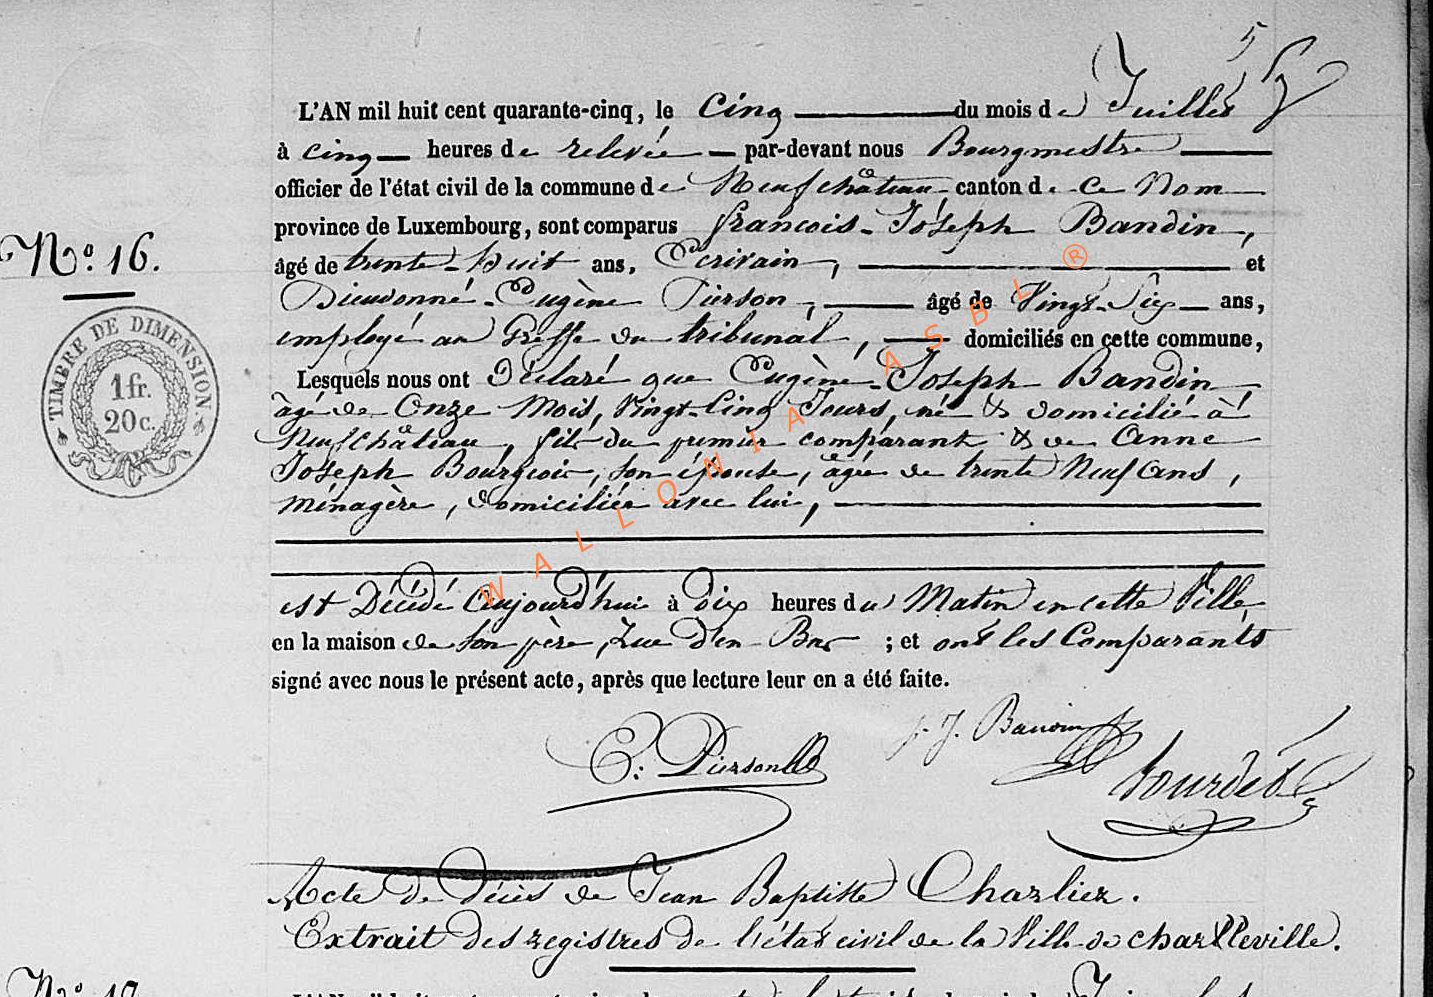 5
L'AN mil huit cent quarante-cinq, le Cinq du mois de Juillet
à cinq heures de relevée par-devant nous Bourgmestre
officier de l'état civil de la commune de Neufchâteau, canton de ce Nom
province de Luxembourg, sont comparus françois-Joseph Baudin,
N.º 16.
âgé de trente-huit ans, Ecrivain, et
Dieudonné-Eugène Pierson, âgé de Vingt-Six ans,
employé au Greffe du tribunal, domiciliés en cette commune,
TIMBRE DE DIMENSION
1 fr.
20 c.
Lesquels nous ont Déclaré que Eugène-Joseph Baudin
âgé de Onze Mois, Vingt-Cinq Jours, né & domicilié à
Neufchâteau, fils du premier comparant & de Anne
Joseph Bourgeois, son épouse, âgée de trente Neuf ans,
Ménagère, domiciliée avec lui,
est Décédé Aujourd'hui à dix heures du Matin en cette Ville,
en la maison de son père, Rue d'en Bas ; et ont les Comparants
signé avec nous le présent acte, après que lecture leur en a été faite.
f. J. Baudin
E: Pierson
Tourdet
Acte de décès de Jean Baptiste Charlier.
Extrait des registres de l'état civil de la Ville de Charleville.
WALLONIA ASBL ®